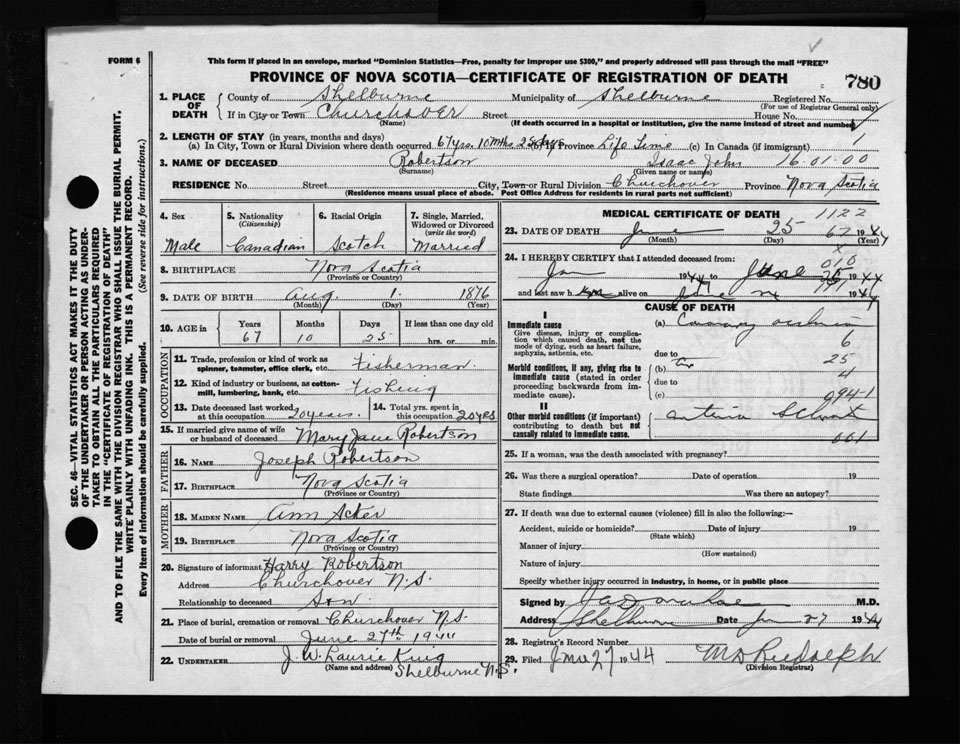 FORM 6
This form if placed in an envelope, marked "Dominion Statistics—Free, penalty for improper use $300," and properly addressed will pass through the mail "FREE"
PROVINCE OF NOVA SCOTIA—CERTIFICATE OF REGISTRATION OF DEATH
780
1. PLACE OF DEATH
County of Shelburne Municipality of Shelburne Registered No.
(For use of Registrar General only)
If in City or Town Churchover Street House No.
(Name) (If death occurred in a hospital or institution, give the name instead of street and number)
2. LENGTH OF STAY (in years, months and days)
(a) In City, Town or Rural Division where death occurred 67 yrs. 10 mths. 25 days (b) Province Life Time (c) In Canada (if immigrant) 1
3. NAME OF DECEASED Robertson Isaac John 16.01.00
(Surname) (Given name or names)
RESIDENCE No. Street City, Town or Rural Division Churchover Province Nova Scotia
(Residence means usual place of abode. Post Office Address for residents in rural parts not sufficient)
4. Sex
Male
5. Nationality
(Citizenship)
Canadian
6. Racial Origin
Scotch
7. Single, Married, Widowed or Divorced
(write the word)
Married
8. BIRTHPLACE Nova Scotia
(Province or Country)
9. DATE OF BIRTH Aug. 1. 1876
(Month) (Day) (Year)
10. AGE in Years Months Days If less than one day old
67 10 25 hrs. or min.
OCCUPATION
11. Trade, profession or kind of work as spinner, teamster, office clerk, etc. Fisherman
12. Kind of industry or business, as cotton-mill, lumbering, bank, etc. Fishing
13. Date deceased last worked at this occupation 20 years.
14. Total yrs. spent in this occupation 20 yrs
15. If married give name of wife or husband of deceased Mary Jane Robertson
FATHER
16. NAME Joseph Robertson
17. BIRTHPLACE Nova Scotia
(Province or Country)
MOTHER
18. MAIDEN NAME Ann Acker
19. BIRTHPLACE Nova Scotia
(Province or Country)
20. Signature of informant Harry Robertson
Address Churchover N.S.
Relationship to deceased Son
21. Place of burial, cremation or removal Churchover N.S.
Date of burial or removal June 27th 1944
22. UNDERTAKER J. W. Laurie King
(Name and address) Shelburne N.S.
MEDICAL CERTIFICATE OF DEATH 1122
23. DATE OF DEATH June 25 67 1944
(Month) (Day) (Year)
24. I HEREBY CERTIFY that I attended deceased from: 010
Jan 1944 to June 25 1944
and last saw h alive on June 1944
CAUSE OF DEATH 1
I
Immediate cause
Give disease, injury or complication which caused death, not the mode of dying, such as heart failure, asphyxia, asthenia, etc.
(a) Coronary
6
due to
25
Morbid conditions, if any, giving rise to immediate cause (stated in order proceeding backwards from immediate cause).
(b) 4
due to
(c) 094-1
II
Other morbid conditions (if important) contributing to death but not causally related to immediate cause.
001
25. If a woman, was the death associated with pregnancy?
26. Was there a surgical operation? Date of operation 19
State findings Was there an autopsy?
27. If death was due to external causes (violence) fill in also the following:—
Accident, suicide or homicide? Date of injury 19
(State which)
Manner of injury
(How sustained)
Nature of injury
Specify whether injury occurred in industry, in home, or in public place
Signed by M.D.
Address Shelburne Date Jun 27 1944
28. Registrar's Record Number
29. Filed June 27 1944 M D Rudolph
(Division Registrar)
SEC. 46—VITAL STATISTICS ACT MAKES IT THE DUTY
OF THE UNDERTAKER OR PERSON ACTING AS UNDER-
TAKER TO OBTAIN ALL THE PARTICULARS REQUIRED
IN THE "CERTIFICATE OF REGISTRATION OF DEATH"
AND TO FILE THE SAME WITH THE DIVISION REGISTRAR WHO SHALL ISSUE THE BURIAL PERMIT.
WRITE PLAINLY WITH UNFADING INK. THIS IS A PERMANENT RECORD.
Every item of information should be carefully supplied. (See reverse side for instructions.)